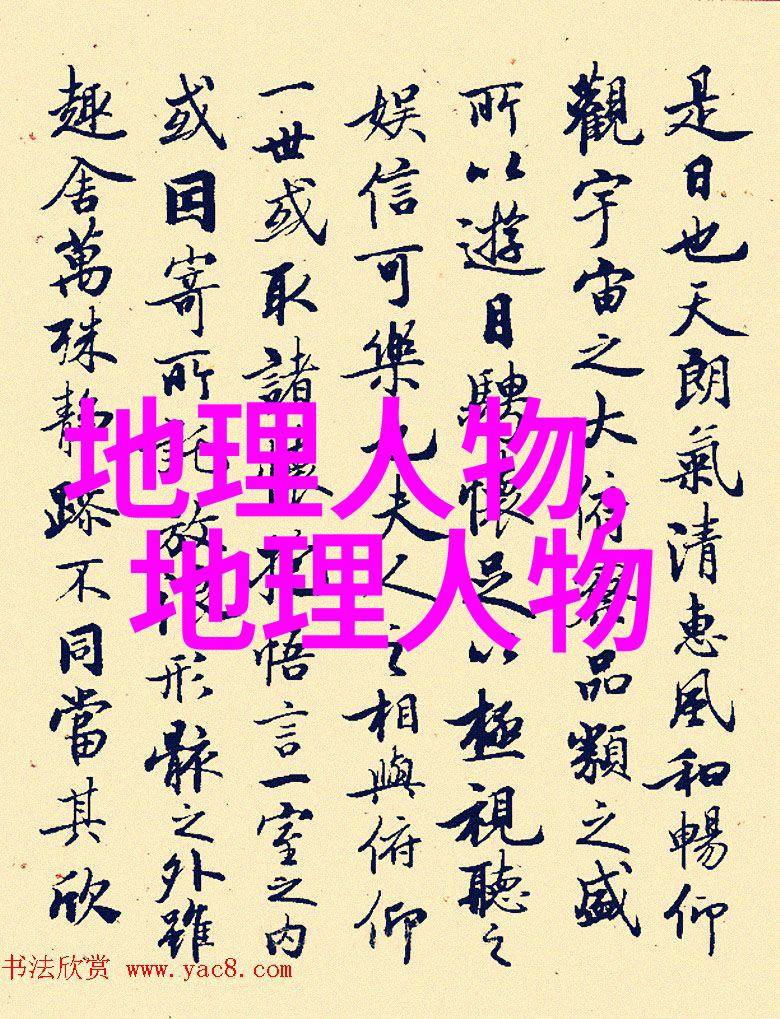 是日也天朗氣清惠風和暢仰
觀宇宙之大俯察品類之盛
所以遊目騁懷足以極視聽之
娛信可樂也夫人之相與俯仰
一世或取諸懷抱悟言一室之内
或因寄所託放浪形骸之外雖
趣舍萬殊靜躁不同當其欣
地理人物,
地理人物
书法欣赏 www.yac8.com